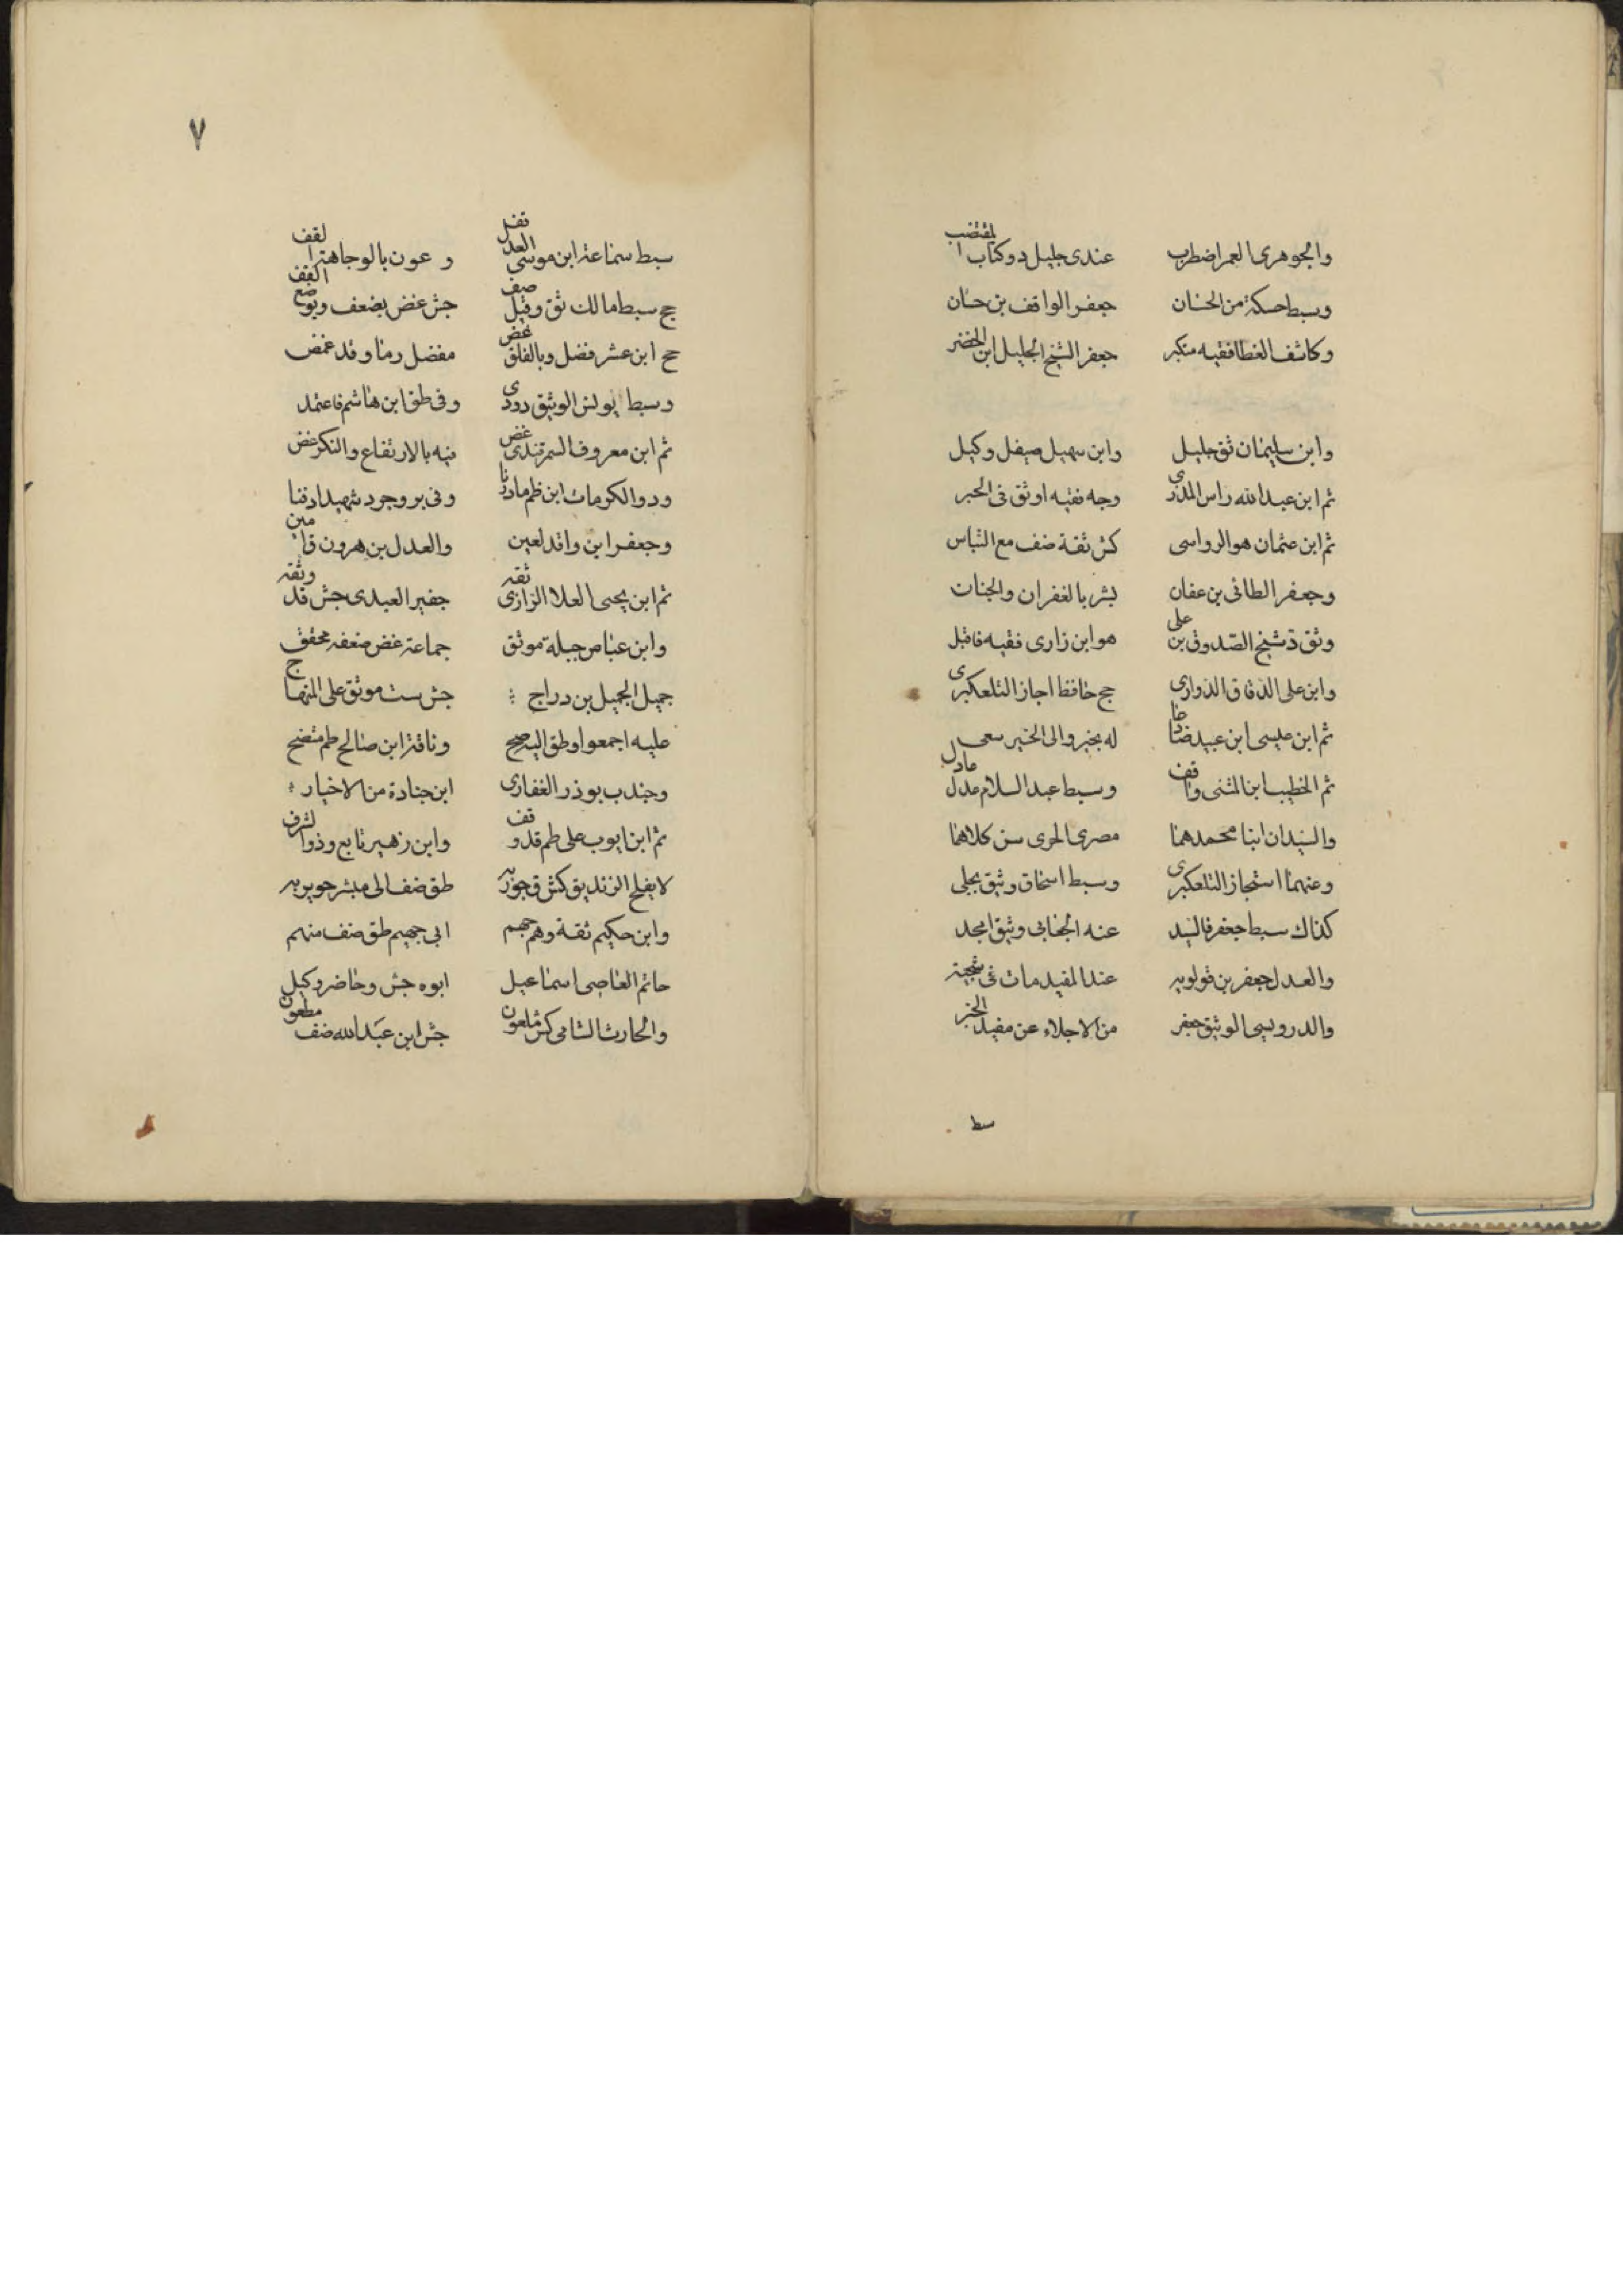 والجوهرى العمر اضطرب عندى جليل ذو كتاب المقتضب
وسبط حسكة من الحسان جعفر الواقف بن حنان
وكاشف الغطا فقيه متبكر جعفر الشيخ الجليل ابن الخضر
وابن سليمان ثق جليل وابن سهيل صيقل وكيل
ثم ابن عبدالله راس المذرى وجه فقيه اوثق فى الخبر
ثم ابن عثمان هو الرواسى كش ثقة ضف مع التباس
وجعفر الطائى بن عفان بشر بالغفران والجنات
وثق ذ شيخ الصدوق بن على هو ابن زارى فقيه فاقبل
وابن على الدقاق الدوارى جج حافظ اجاز التلعكبرى
ثم ابن عيسى ابن عبيد له بخير والى الخير سعى
ثم الخطيب ابن المثنى واقف وسبط عبد السلام عدل عادل
والسيدان ابنا محمد هما مصرى الحرى سن كلاهما
وعنهما استجاز التلعكبرى وسبط اسحاق وثيق بجلى
كذاك سبط جعفر فالسيد عنه الجعابى وثيق امجد
والعدل جعفر بن قولويه عند المفيد مات فى
والدرويسى الوثيق جعفر من الاجلاء عن مفيد الخبر
سط
٧
سبط سماعة ابن موسى العدل ثف وعون بالوجاهة القف
جج سبط مالك ثق وقيل صف جش غض بضعف وبوضع القف
جح ابن عشر فضل وبالغلق غض مفضل رضا وقد غمض
وسبط يونس الوثيق دودى وفى طق ابن هاشم فاعتمد
ثم ابن معروف السمرقندى غض فيه بالارتفاع والنكر غض
وذو الكرمات ابن ظم مادرنا وفى بروجرد شهيدا دفنا
وجعفر ابن واقد لعين والعدل بن هرون قامين
ثم ابن يحيى العلا الرازى ثقه جفير العبدى جش قد وثقه
وابن عباص جبلة موثق جماعة غض ضعفه محقق
جميل الجميل بن دراج جش ست موثق على المنهاج
عليه اجمعوا وطق اليه صح وناقة ابن صالح طم متضح
وجندب بوذر الغفارى ابن جنادة من الاخيار
ثم ابن ايوب على طم قد وقف وابن زهير تابع وذو الشرف
لا يفلح الزنديق كش ق جوزيه طق ضف الى مبشر جويريه
وابن حكيم ثقة وهم جهم ابى جهيم طق ضف منهم
حاتم العاصى اسماعيل ابوه جش وحاضر وكيل
والحارث الشامى كش ملعون جش ابن عبدالله ضف مطعون